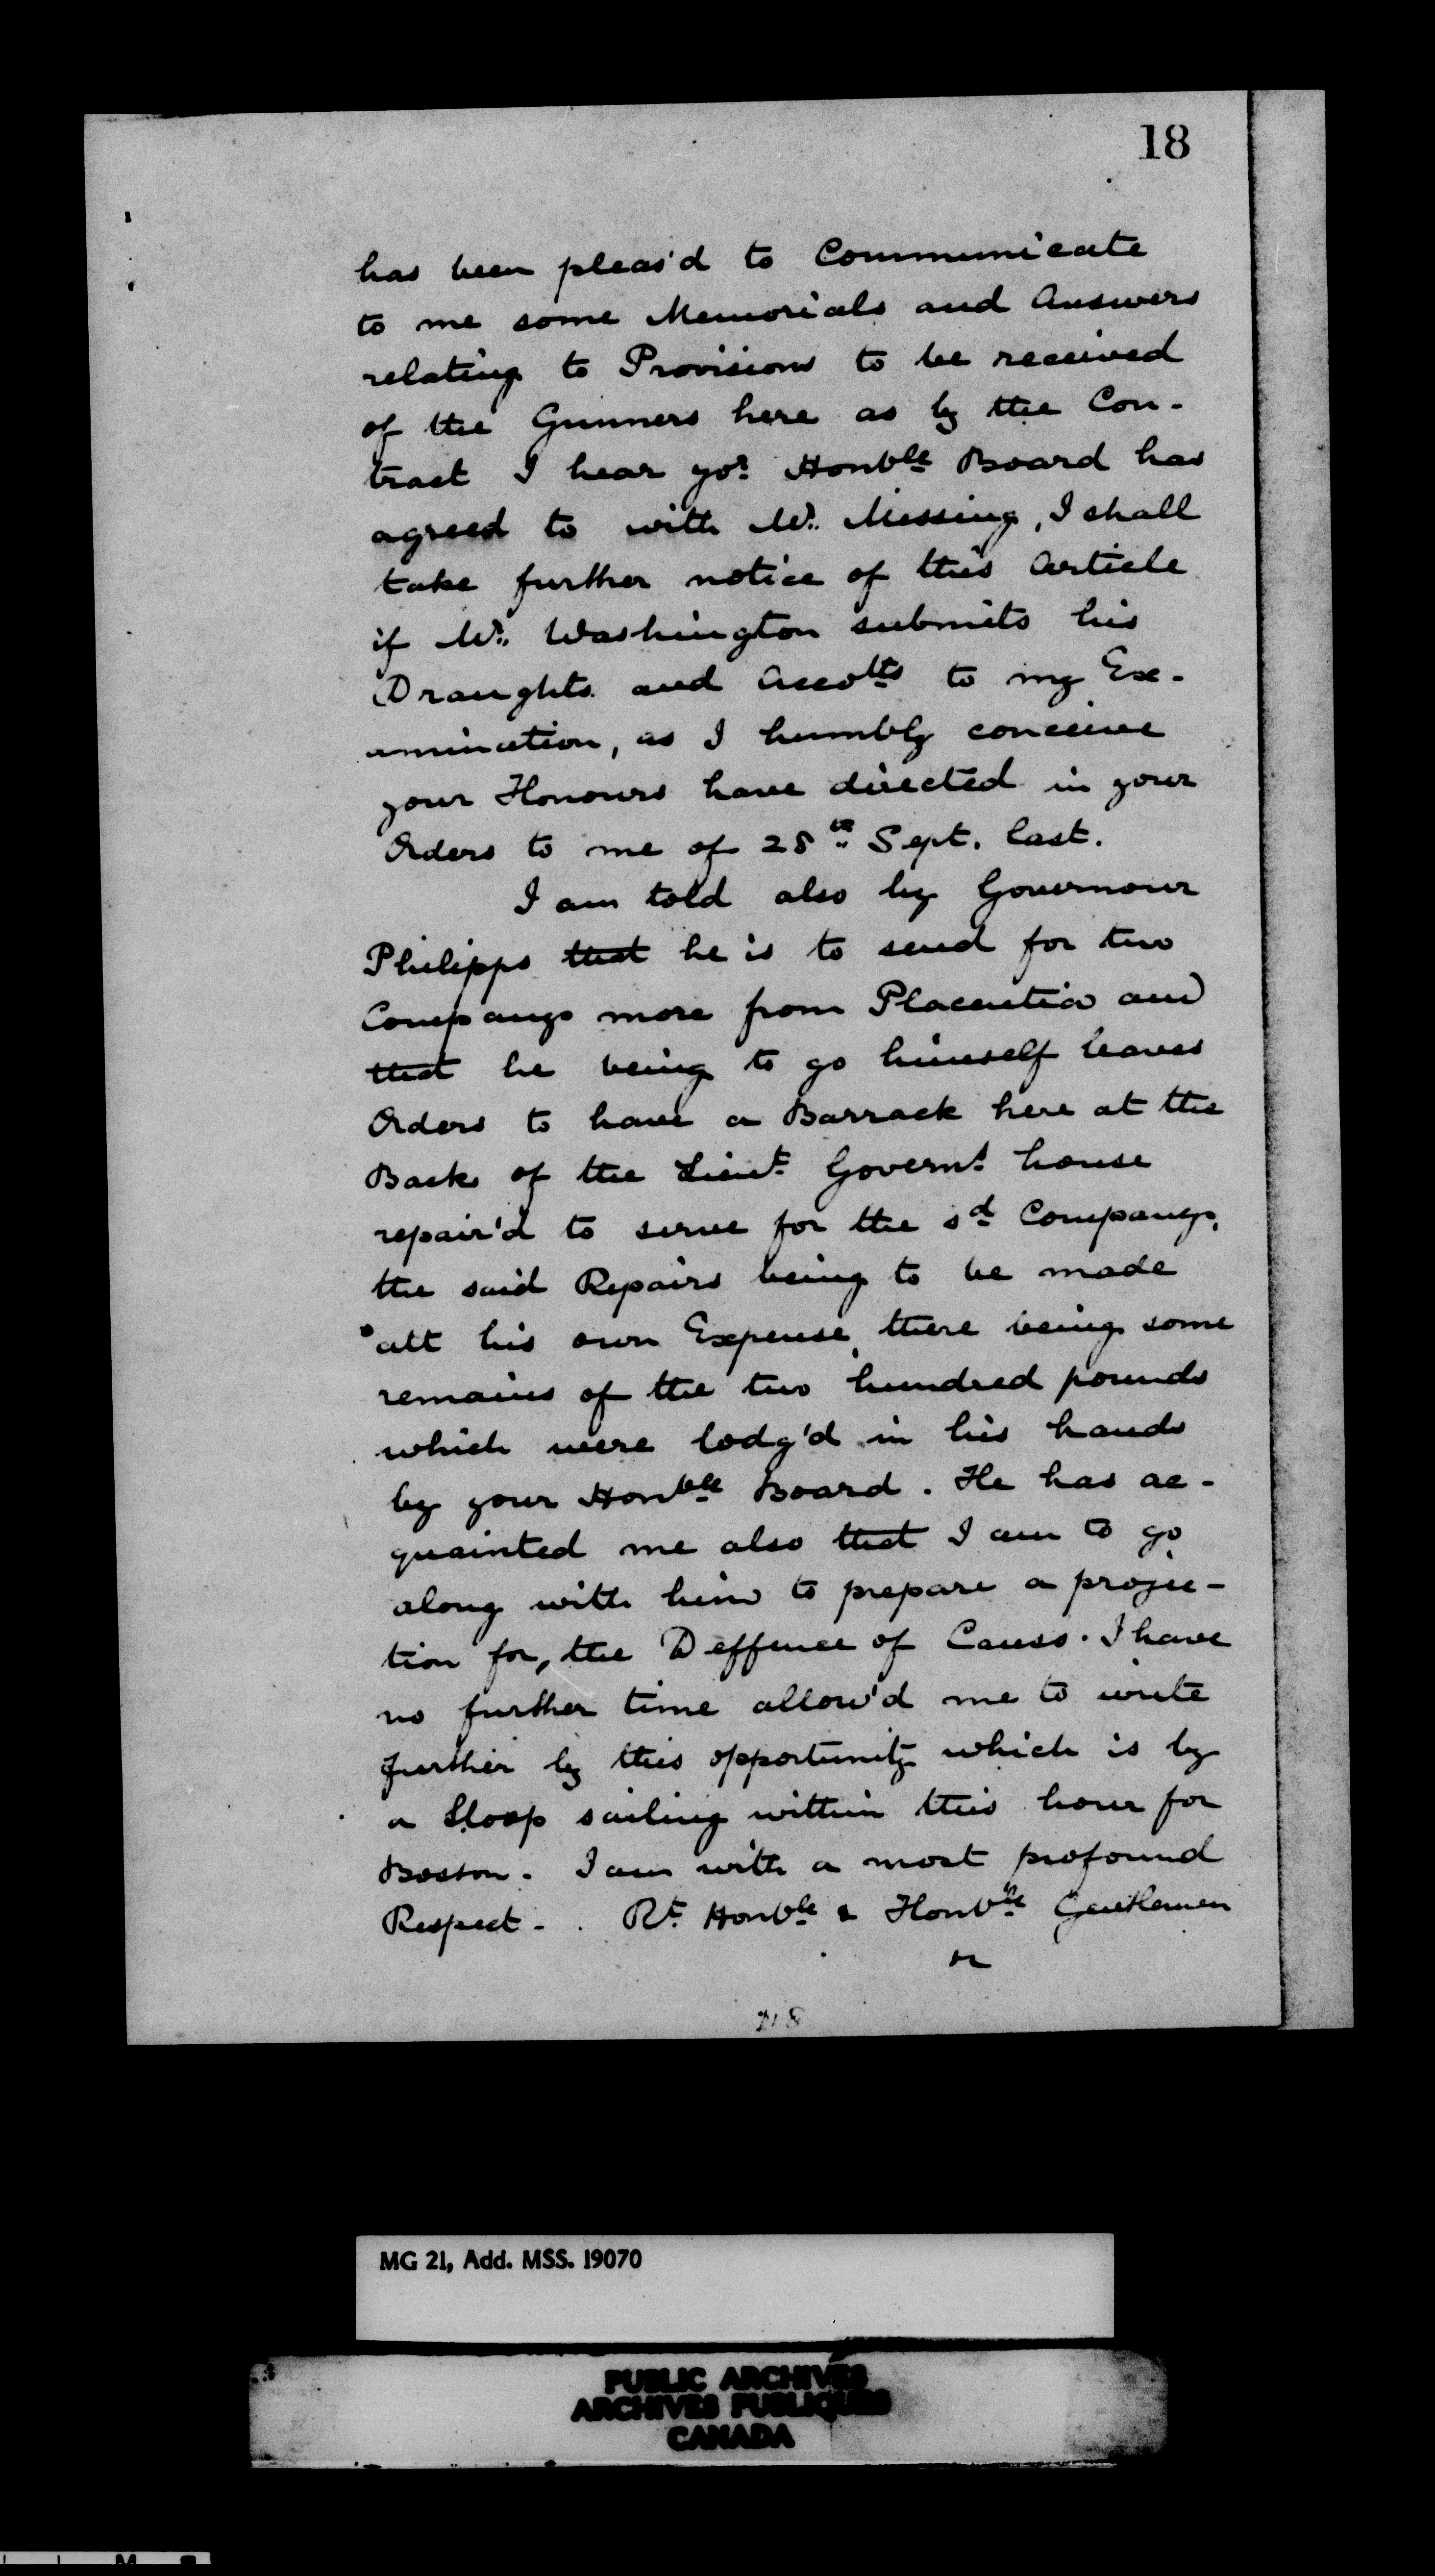 18
has been pleas'd to Communicate
to me some Memorials and Answers
relating to Provisions to be received
of the Gunners here as by the Con-
tract I hear yor. Honble Board has
agreed to with Mr. Missing, I shall
take further notice of this Article
if Mr. Washington submits his
Draughts and Accotts to my Ex-
amination, as I humbly conceive
your Honours have directed in your
Orders to me of 28th Sept. last.
I am told also by Governour
Philipps that he is to send for two
Companys more from Placentia and
that he being to go himself leaves
Orders to have a Barrack here at the
Back of the Lieut Governrs house
repair'd to serve for the sd Companys,
the said Repairs being to be made
att his own Expense, there being some
remains of the two hundred pounds
which were lodg'd in his hands
by your Honble Board. He has ac-
quainted me also that I am to go
along with him to prepare a projec-
tion for, the Deffence of Canso. I have
no further time allow'd me to write
further by this opportunity which is by
a Sloop sailing within this hour for
Boston. I am with a most profound
Respect - . Rt Honble & Honble Gentlemen
MG 21, Add. MSS. 19070
PUBLIC ARCHIVES
ARCHIVES PUBLIQUES
CANADA